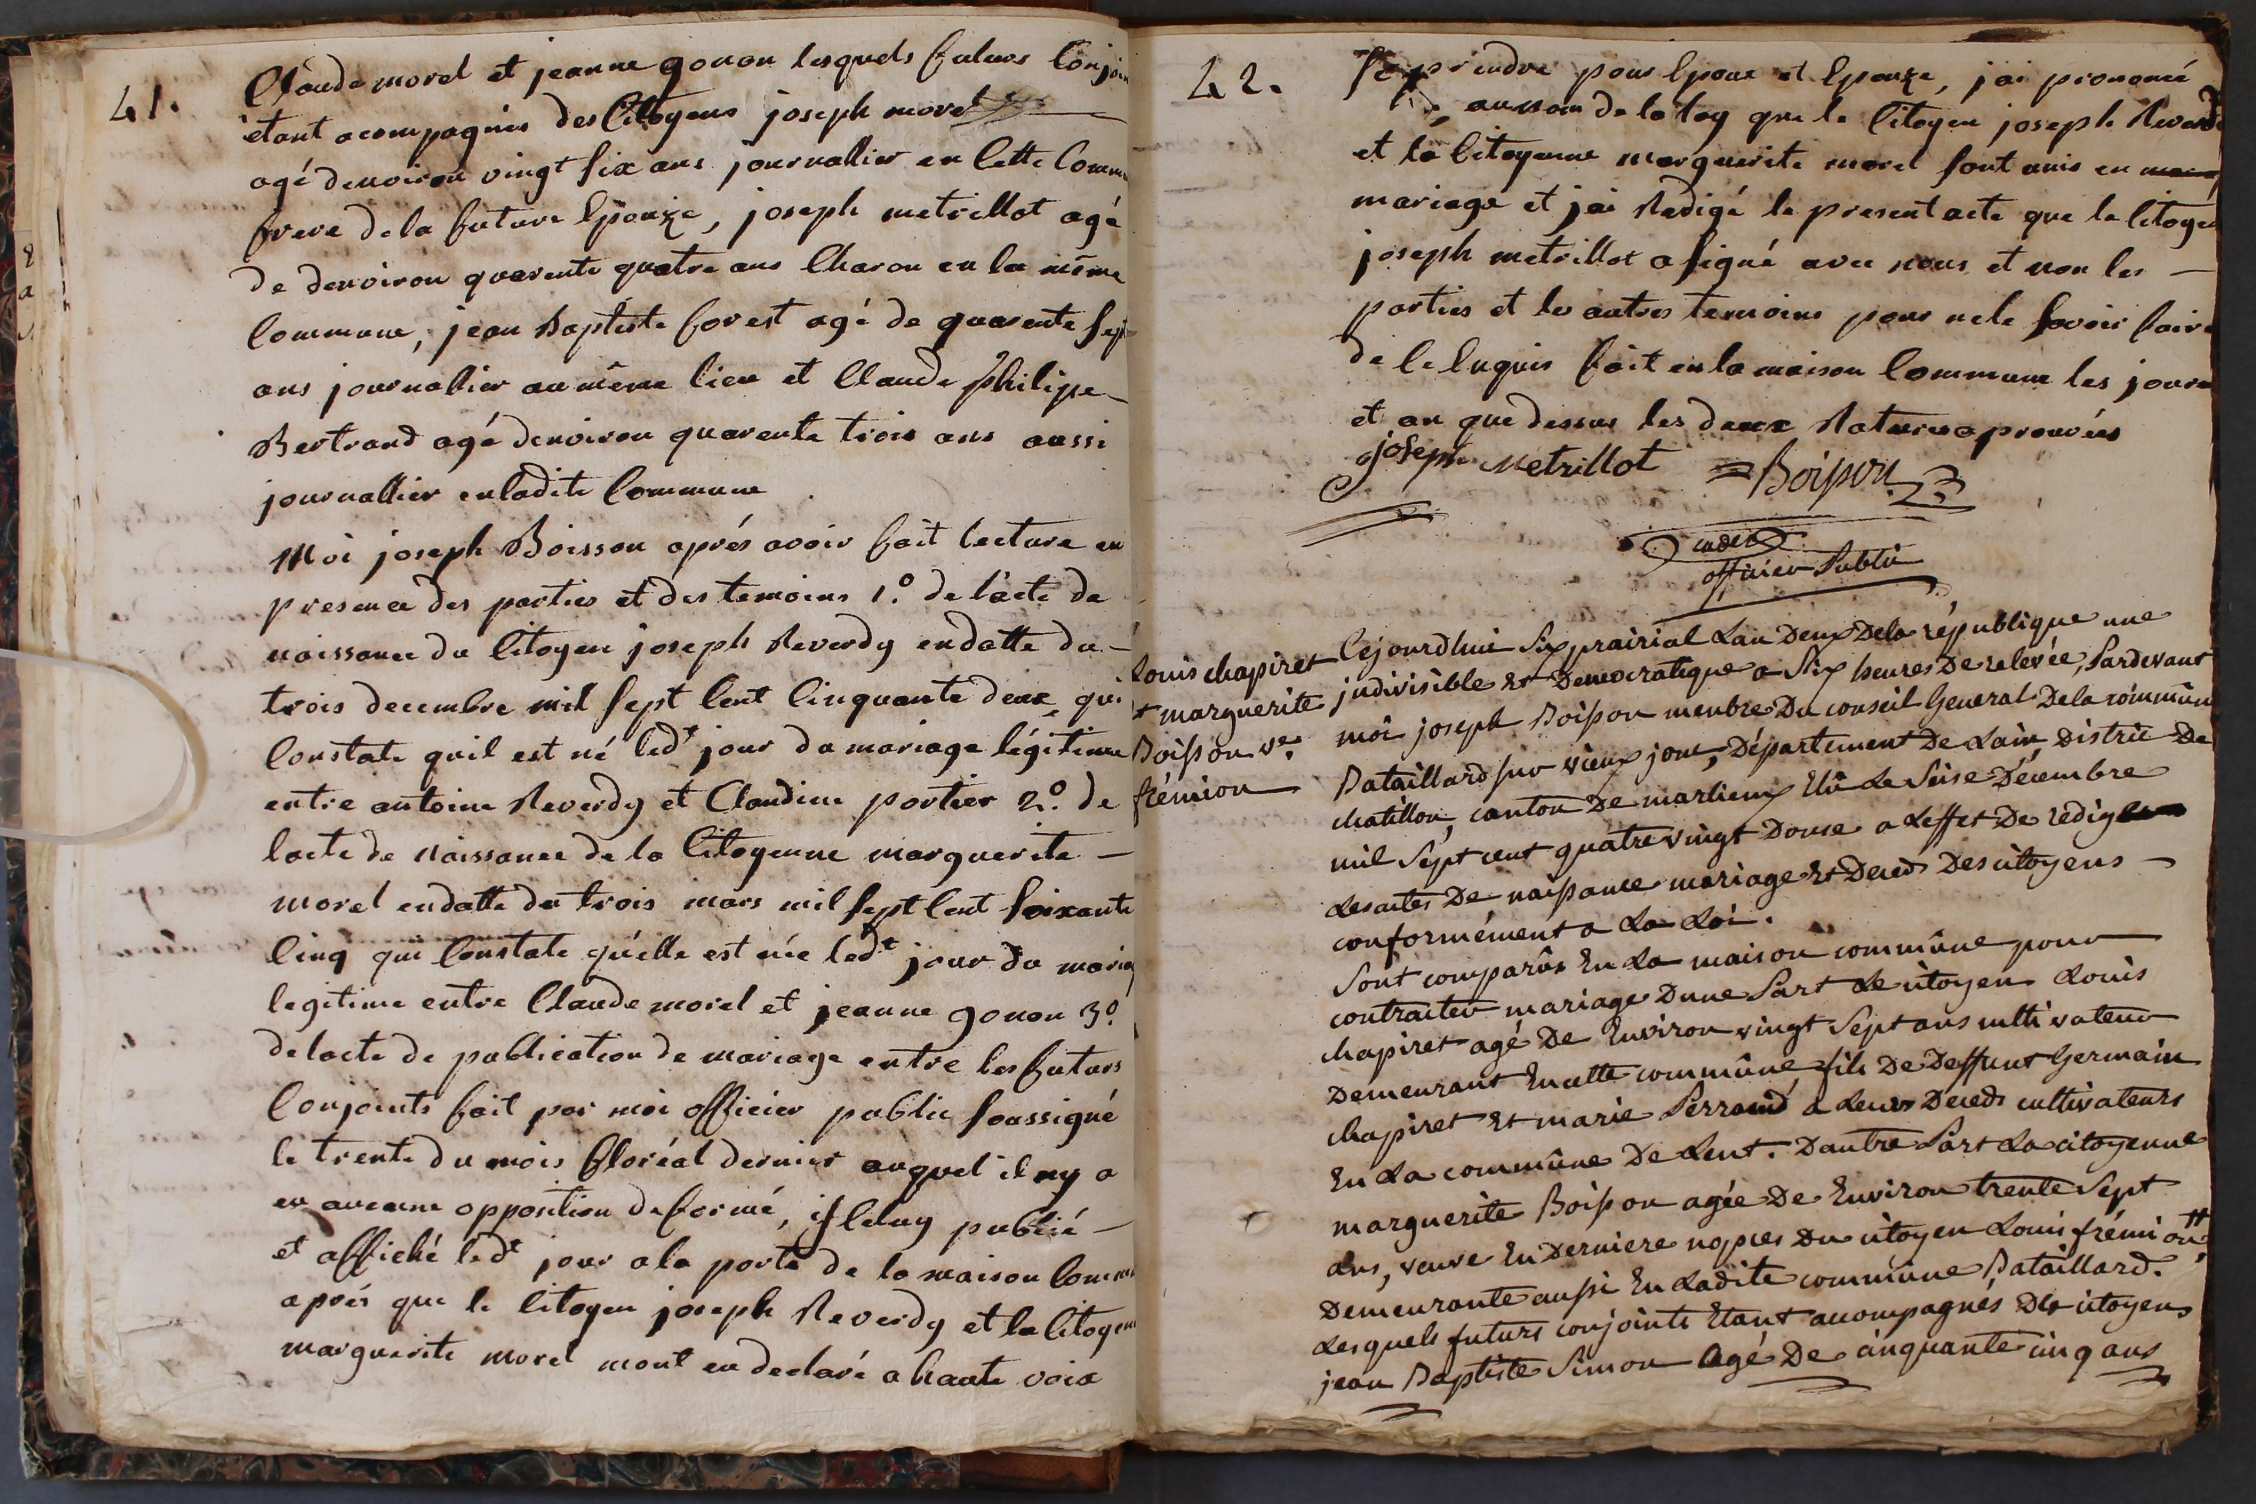 41.
Claude morel et jeanne gonon lesquels futurs Conjoin
étant acompagnés des Citoyens joseph morel
agé denviron vingt six ans journallier en Cette Commu
frere dela future Epouze, joseph metrillot agé
de denviron quarente quatre ans Charon en la même
Commune, jean Baptiste forest agé de quarente sept
ans journallier au même lieu et Claude Philipe –
Bertrand agé denviron quarente trois ans aussi
journallier enladite Commune
Moi joseph Boisson aprés avoir fait lecture en
presence des parties et des temoins 1.º de l'acte de
naissance du Citoyen joseph Reverdy endatte du –
trois decembre mil sept Cent Cinquante deux qui
Constate quil est né ledt jour du mariage légitime
entre antoine Reverdy et Claudine portier 2.º de
lacte de Naissance de la Citoyenne marguerite –
morel endatte du trois mars mil sept Cent soixante
Cinq qui Constate qu'elle est née ledt jour du mariag
legitime entre Claude morel et jeanne gonon 3º
delacte de publication de mariage entre les futurs
Conjoints fait par moi officier public soussigné
le trente du mois floréal dernier auquel il ny a
eu aucune opposition de formé, iceluy publié –
et affiché ledt jour a la porte de la maison Commu
aprés que le Citoyen joseph Reverdy et la Citoyenn
marguerite morel mont eu declaré a haute voix
42.
se prendre pour Epoux et Epouze, jai prononcé
au nom de la loy que le Citoyen joseph Reverdy
et la Citoyenne marguerite morel sont unis en
mariage et jai Redigé le present acte que le Citoyen
joseph metrillot a signé avec nous et non les –
parties et les autres temoins pour ne le savoir faire
de Ce Enquis fait en la maison Commune les jour
et an que dessus les deux Ratures aprouvées
joseph Metrillot = Boisson
officier Public
Louis chapiret
et marguerite
Boisson ve.
frémion
Cejourdhui six prairial Lan Deux Dela république une
indivisible et Democratique a Six heures De relevée, Pardevant
moi joseph Boisson menbre Du conseil General Dela commûn
Bataillard sur vieux jonc, Département De Lain District De
chatillon, canton De marlieux Elû Le Seise Décembre
mil Sept cent quatrevingt Douse a Leffet De rediger
Lesactes De naissance mariage et Deced Des citoyens –
conformément a La Loi.
Sont comparûs En La maison commûne pour
contracter mariage Dune Part Le citoyen Louis
chapiret agé De Environ vingt Sept ans cultivateur
Demeurant En cette commûne fils De Deffunt Germain
chapiret et marie Perraud a Leurs Deceds cultivateurs
En La commûne De Lent. Dautre Part La citoyenne
marguerite Boisson agée De Environ trente Sept
ans, veuve En Derniere nopces Du citoyen Louis frémion
Demeurante aussi En Ladite commûne Bataillard.
Lesquels futurs conjoints Etant accompagnés Des citoyens
jean Baptiste Simon Agé De cinquante cinq ans